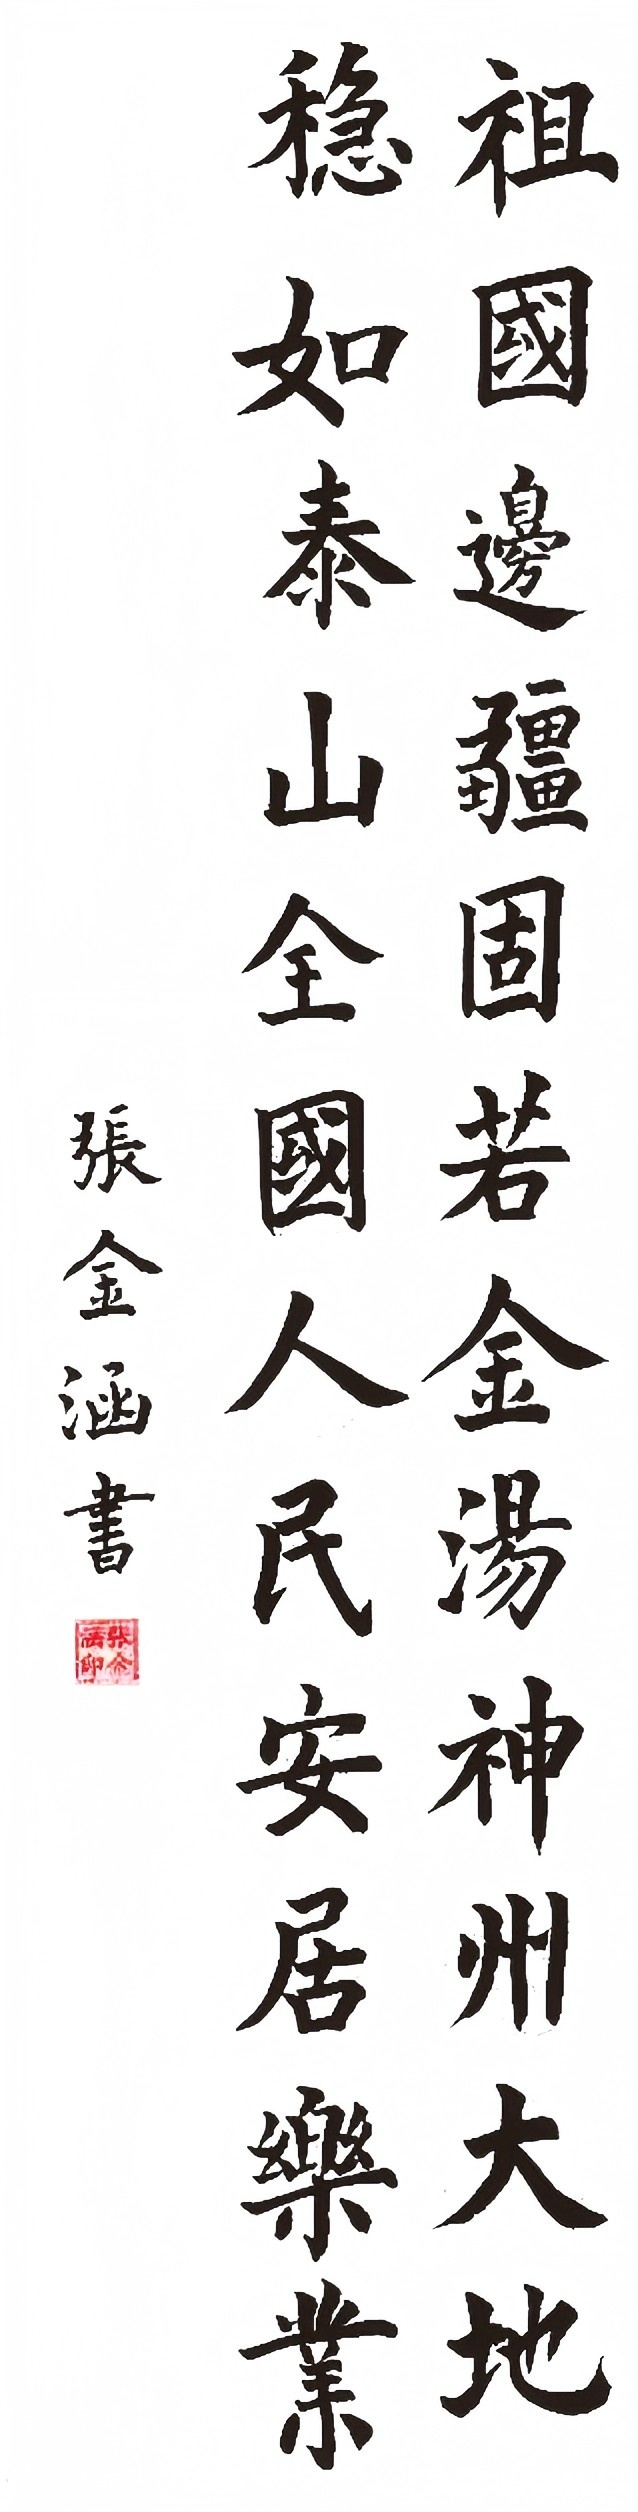 祖國邊疆固若金湯神州大地
稳如泰山全國人民安居樂業
張金涵書
张金涵印